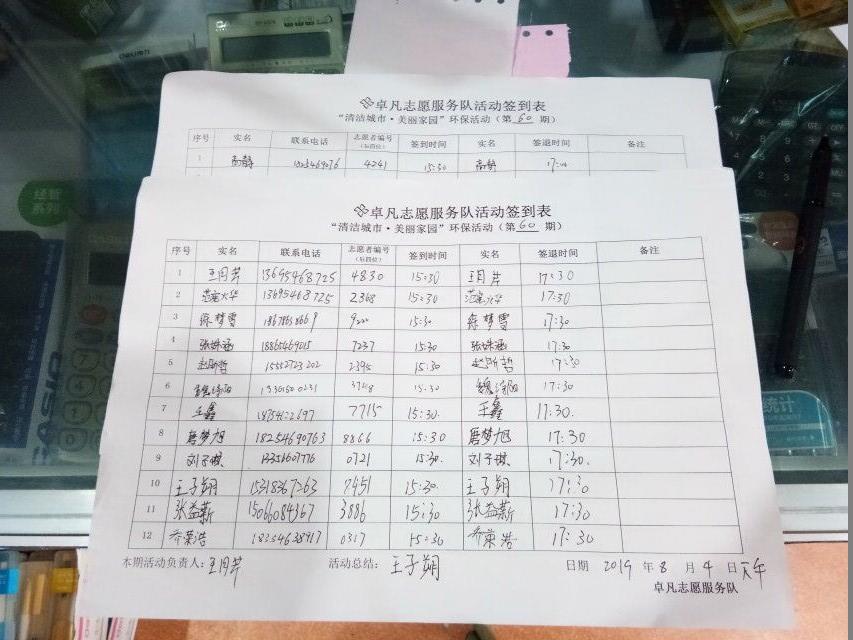 卓凡志愿服务队活动签到表
“清洁城市·美丽家园”环保活动（第 60 期）
序号 实名 联系电话 志愿者编号（后四位） 签到时间 实名 签退时间 备注
1 4241 15:30
卓凡志愿服务队活动签到表
“清洁城市·美丽家园”环保活动（第 60 期）
序号 实名 联系电话 志愿者编号（后四位） 签到时间 实名 签退时间 备注
1 王月芹 13695468725 4830 15:30 王月芹 17:30
2 13695468725 2368 15:30 17:30
3 徐梦雪 15:30 徐梦雪 17:30
4 张姝涵 18865469015 7237 15:30 张姝涵 17:30
5 赵斯哲 15552723202 2395 15:30 赵斯哲 17:30
6 15:30 17:30
7 王鑫 7715 15:30. 王鑫 17:30.
8 唐梦旭 18254690763 8866 15:30 唐梦旭 17:30
9 刘子琪 0721 15:30. 刘子琪 17:30.
10 王子朔 15318367263 7451 15:30. 王子朔 17:30
11 张益薪 15066084367 3886 15:30 张益薪 17:30
12 乔荣浩 18354638917 0317 15:30 乔荣浩 17:30
本期活动负责人: 王月芹 活动总结: 王子朔 日期 2019 年 8 月 4 日 下午
卓凡志愿服务队
经智
系列
CASIO
统计